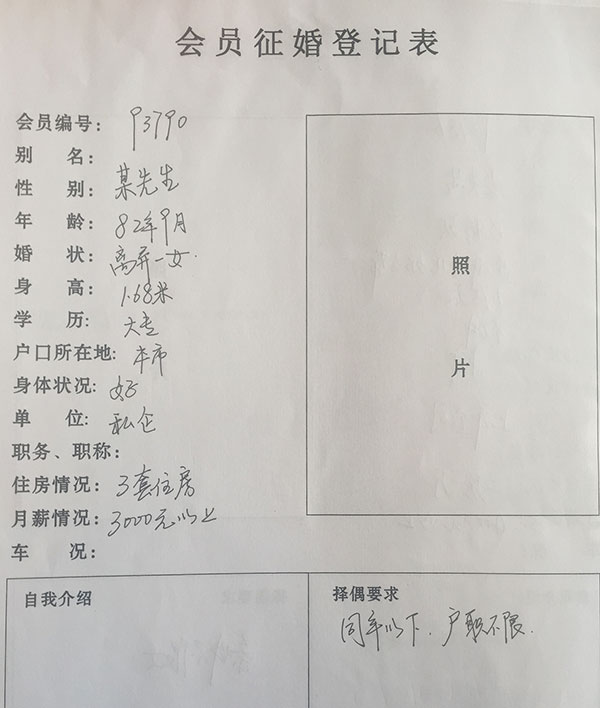 会员征婚登记表
会员编号： 93790
别 名：
性 别： 某先生
年 龄： 82年9月
婚 状： 离异一女.
身 高： 1.68米
学 历： 大专
户口所在地： 本市
身体状况： 好
单 位： 私企
职务、职称：
住房情况： 3套住房
月薪情况： 3000元以上
车 况：
照
片
自我介绍
择偶要求
同年以下、户职不限.